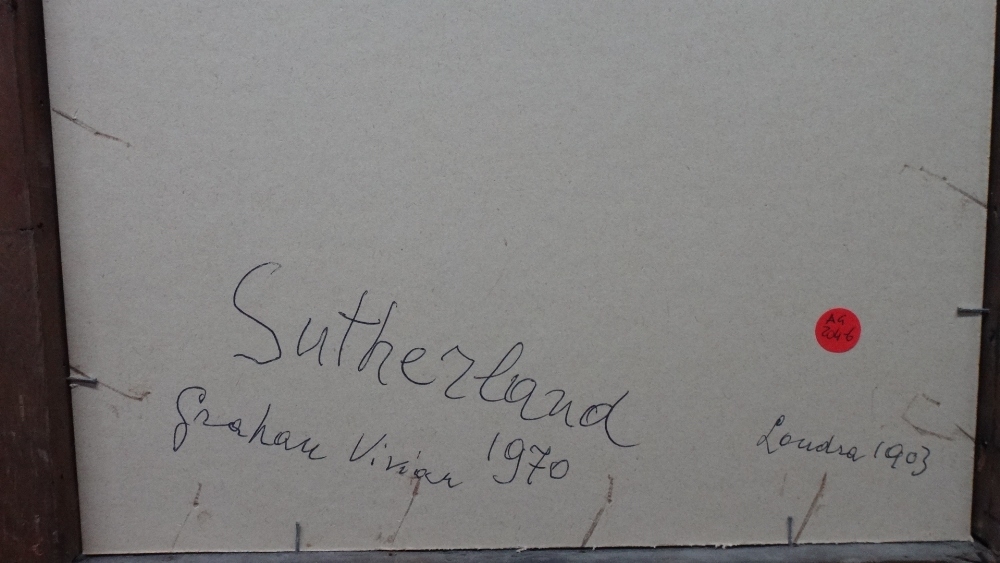 Sutherland
Grahan Vivian 1970
Londra 1903
AG
246